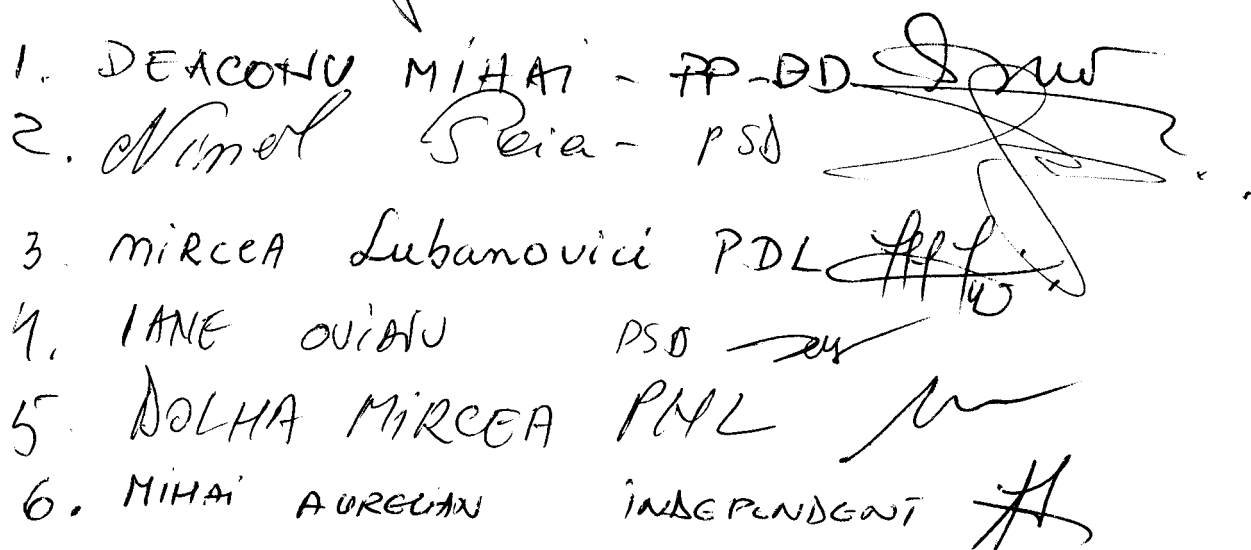 1. DEACONU MIHAI - PP-DD
2. Ninel Peia - PSD
3 MIRCEA Lubanovici PDL
4. IANE OVIDIU PSD
5. DOLHA MIRCEA PNL
6. MIHAI AURELIAN INDEPENDENT